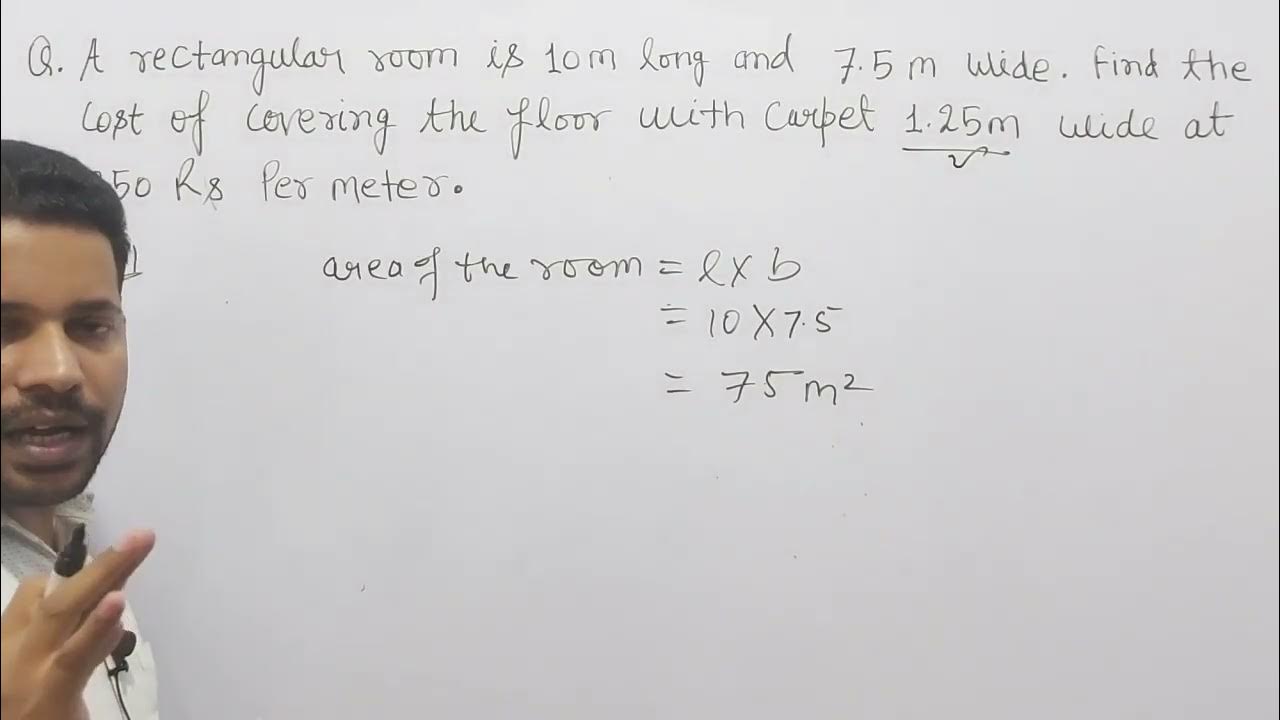 Q. A rectangular room is 10m long and 7.5 m wide. Find the
Cost of Covering the floor with Carpet 1.25m wide at
50 Rs Per meter.
area of the room = l x b
= 10 x 7.5
= 75 m²